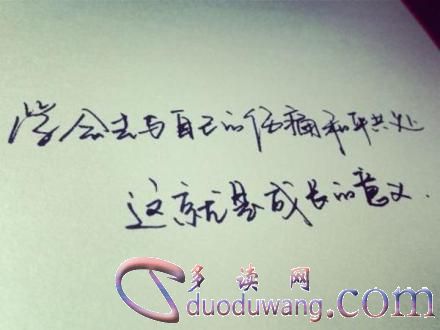 学会去与自己的伤痛和平共处
这就是成长的意义.
多读网
duoduwang.com